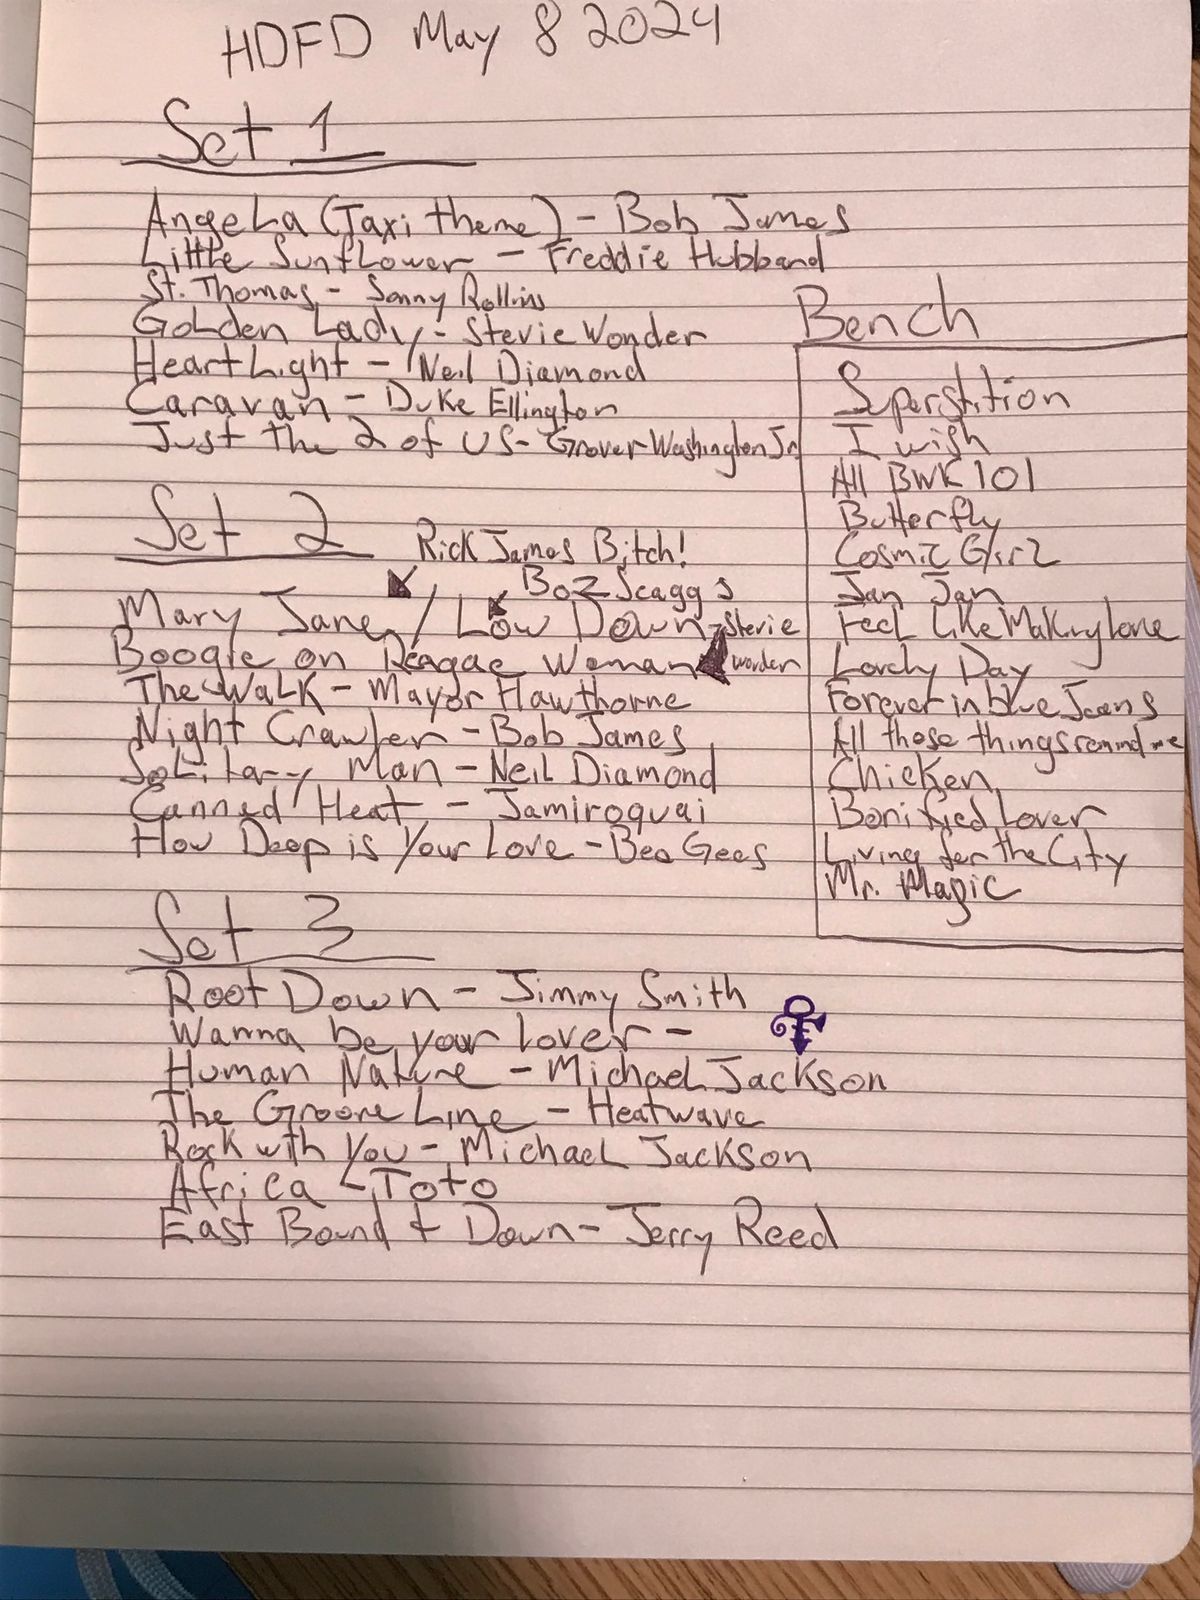 HDFD May 8 2024
Set 1
Angela (Taxi theme) - Bob James
Little Sunflower - Freddie Hubband
St. Thomas - Sonny Rollins
Golden Lady - Stevie Wonder
Heart Light - Neil Diamond
Caravan - Duke Ellington
Just the 2 of us - Grover Washington Jr
Set 2
Rick James Bitch!
Boz Scaggs
Mary Jane / Low Down - Stevie
Boogie on Reagae Woman Wonder
The Walk - Mayor Hawthorne
Night Crawler - Bob James
Solitary Man - Neil Diamond
Canned Heat - Jamiroquai
How Deep is Your Love - Bee Gees
Set 3
Root Down - Jimmy Smith
Wanna be your lover -
Human Nature - Michael Jackson
The Groove Line - Heatwave
Rock with You - Michael Jackson
Africa - Toto
East Bound & Down - Jerry Reed
Bench
Superstition
I wish
All BWK 101
Butterfly
Cosmic Girl
Jan Jan
Feel Like Making love
Lovely Day
Forever in blue Jeans
All those things remind me
Chicken
Bonified Lover
Living for the City
Mr. Magic